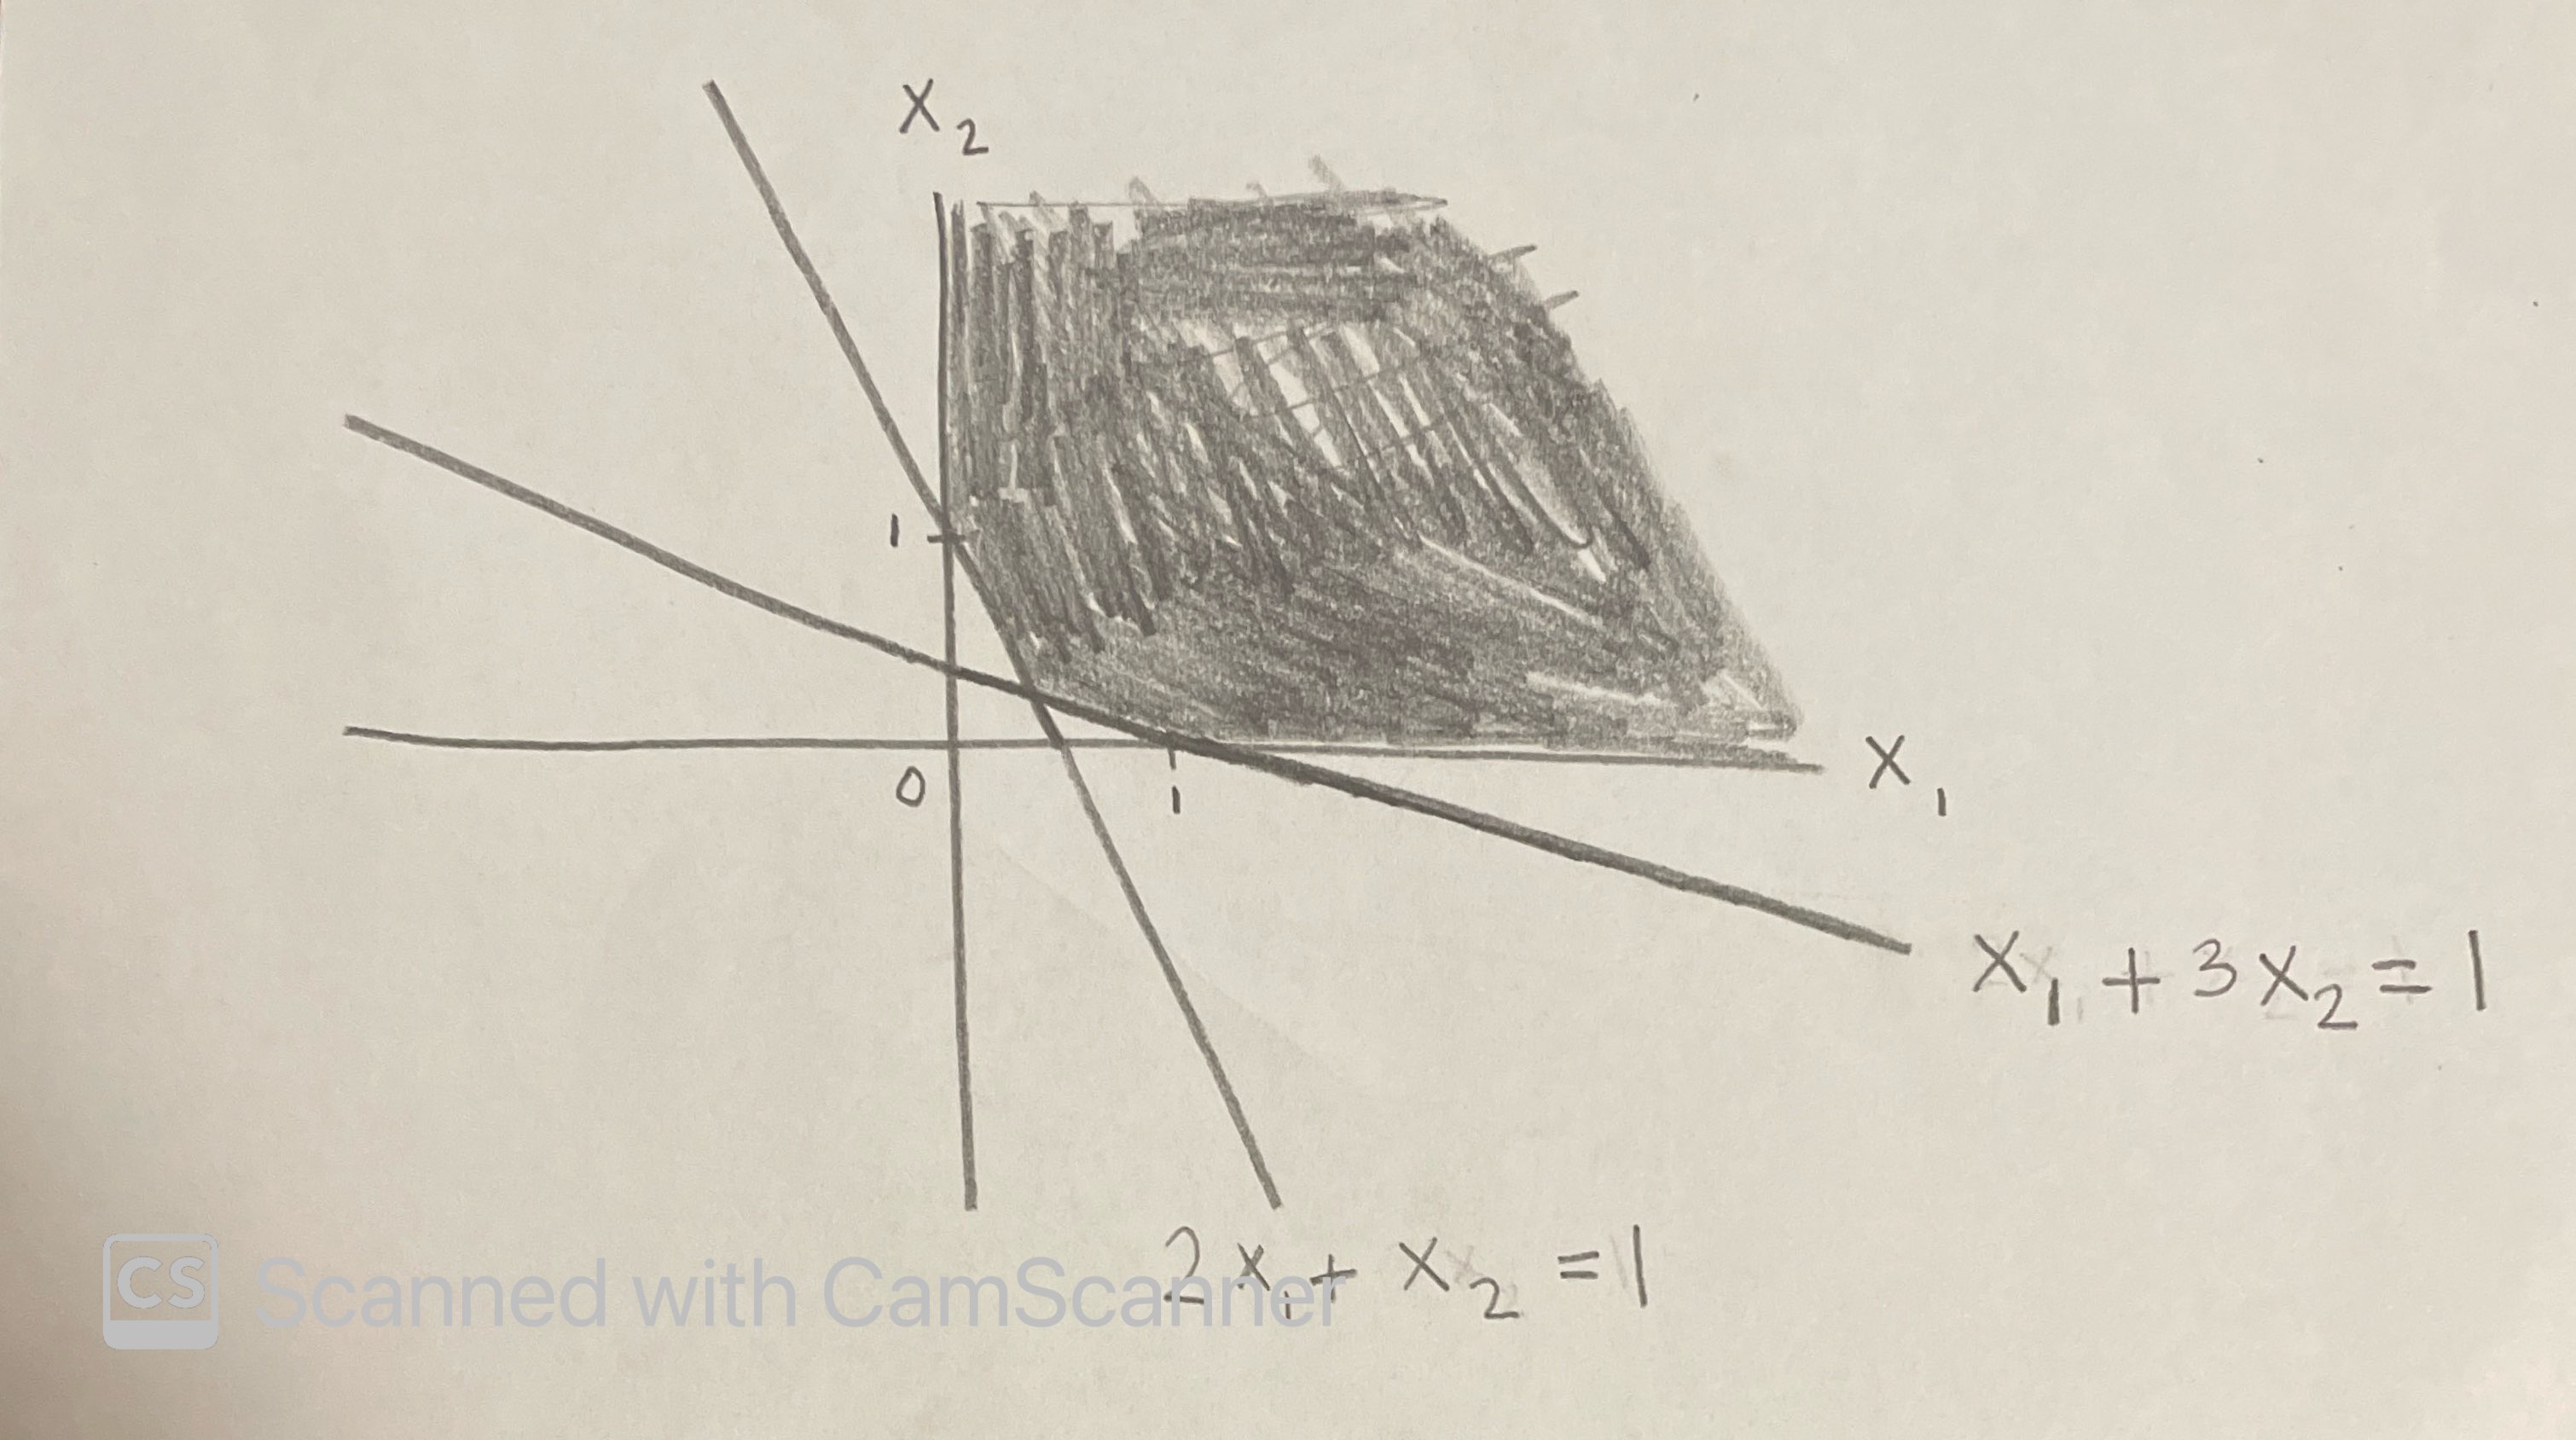 X₂
1
0
1
X₁
X₁ + 3X₂ = 1
2X₁ + X₂ = 1
CS Scanned with CamScanner